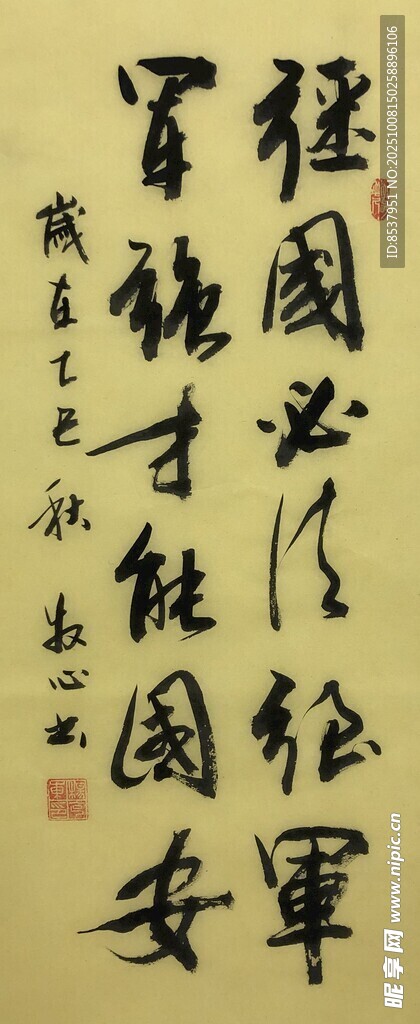 彊國必须强軍
军强才能國安
歲在乙巳秋 牧心书
ID:8537951 NO:20251008150258896106
昵享网 www.nipic.cn